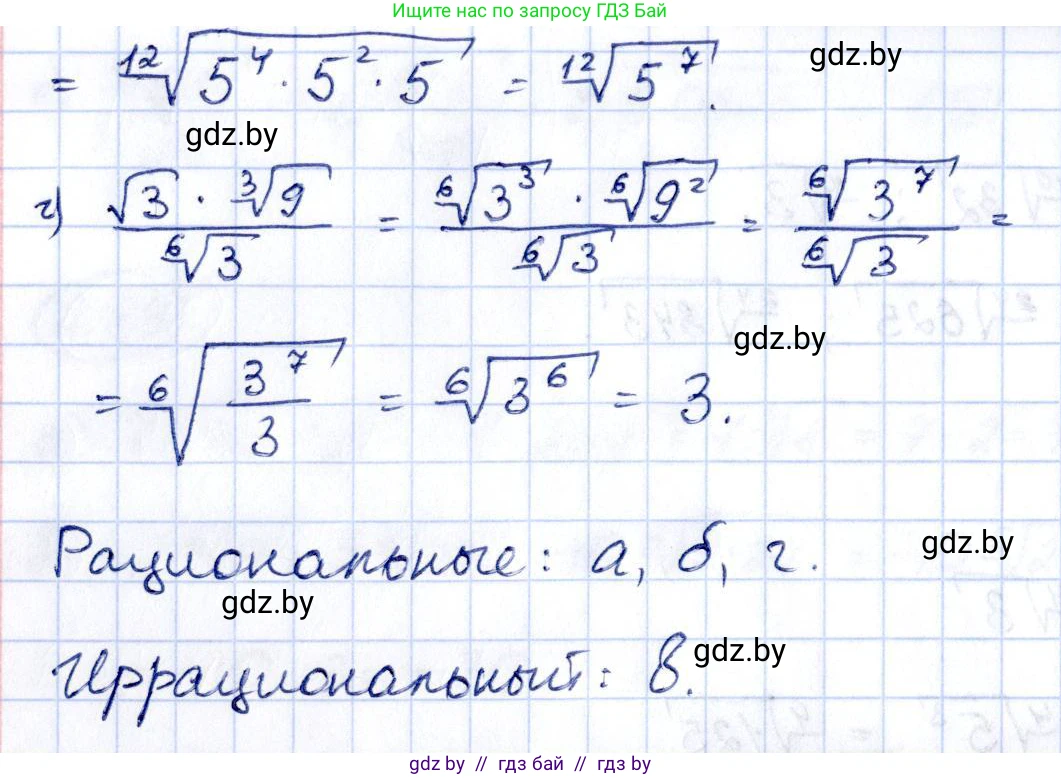 Ищите нас по запросу ГДЗ Бай
= ¹²√(5⁴ · 5² · 5) = ¹²√(5⁷). gdz.by
gdz.by
г) (√3 · ³√9)/(⁶√3) = (⁶√(3³) · ⁶√(9²))/(⁶√3) = (⁶√(3⁷))/(⁶√3) =
gdz.by
= ⁶√(3⁷/3) = ⁶√(3⁶) = 3.
Рациональные: а, б, г. gdz.by
gdz.by
Иррациональный: в. gdz.by
gdz.by // гдз бай // gdz.by